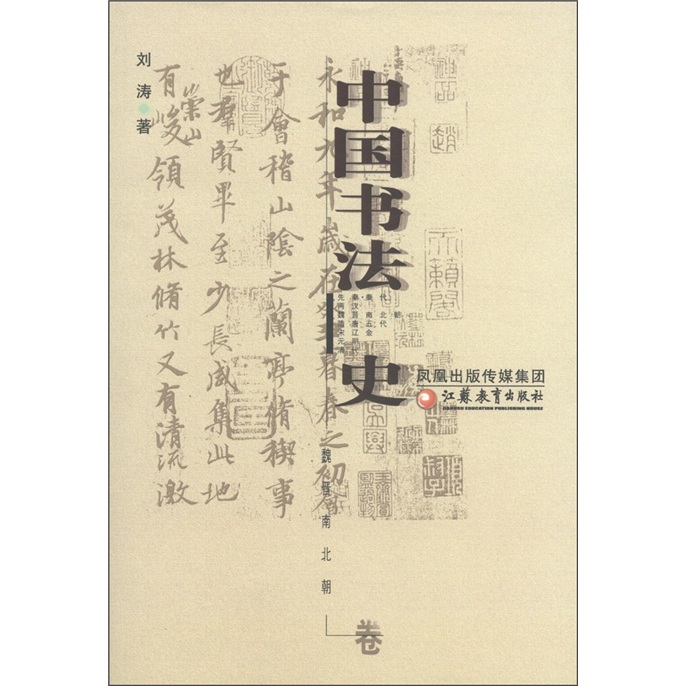 刘涛 著
中国书法史
先秦·秦代
两汉
魏晋南北朝
隋唐五代
宋辽金
元明
清代
魏晋南北朝
卷
凤凰出版传媒集团
江苏教育出版社
JIANGSU EDUCATION PUBLISHING HOUSE
永和九年歲在癸丑暮春之初會
于會稽山陰之蘭亭脩稧事
也群賢畢至少長咸集此地
有崇山峻領茂林脩竹又有清流激